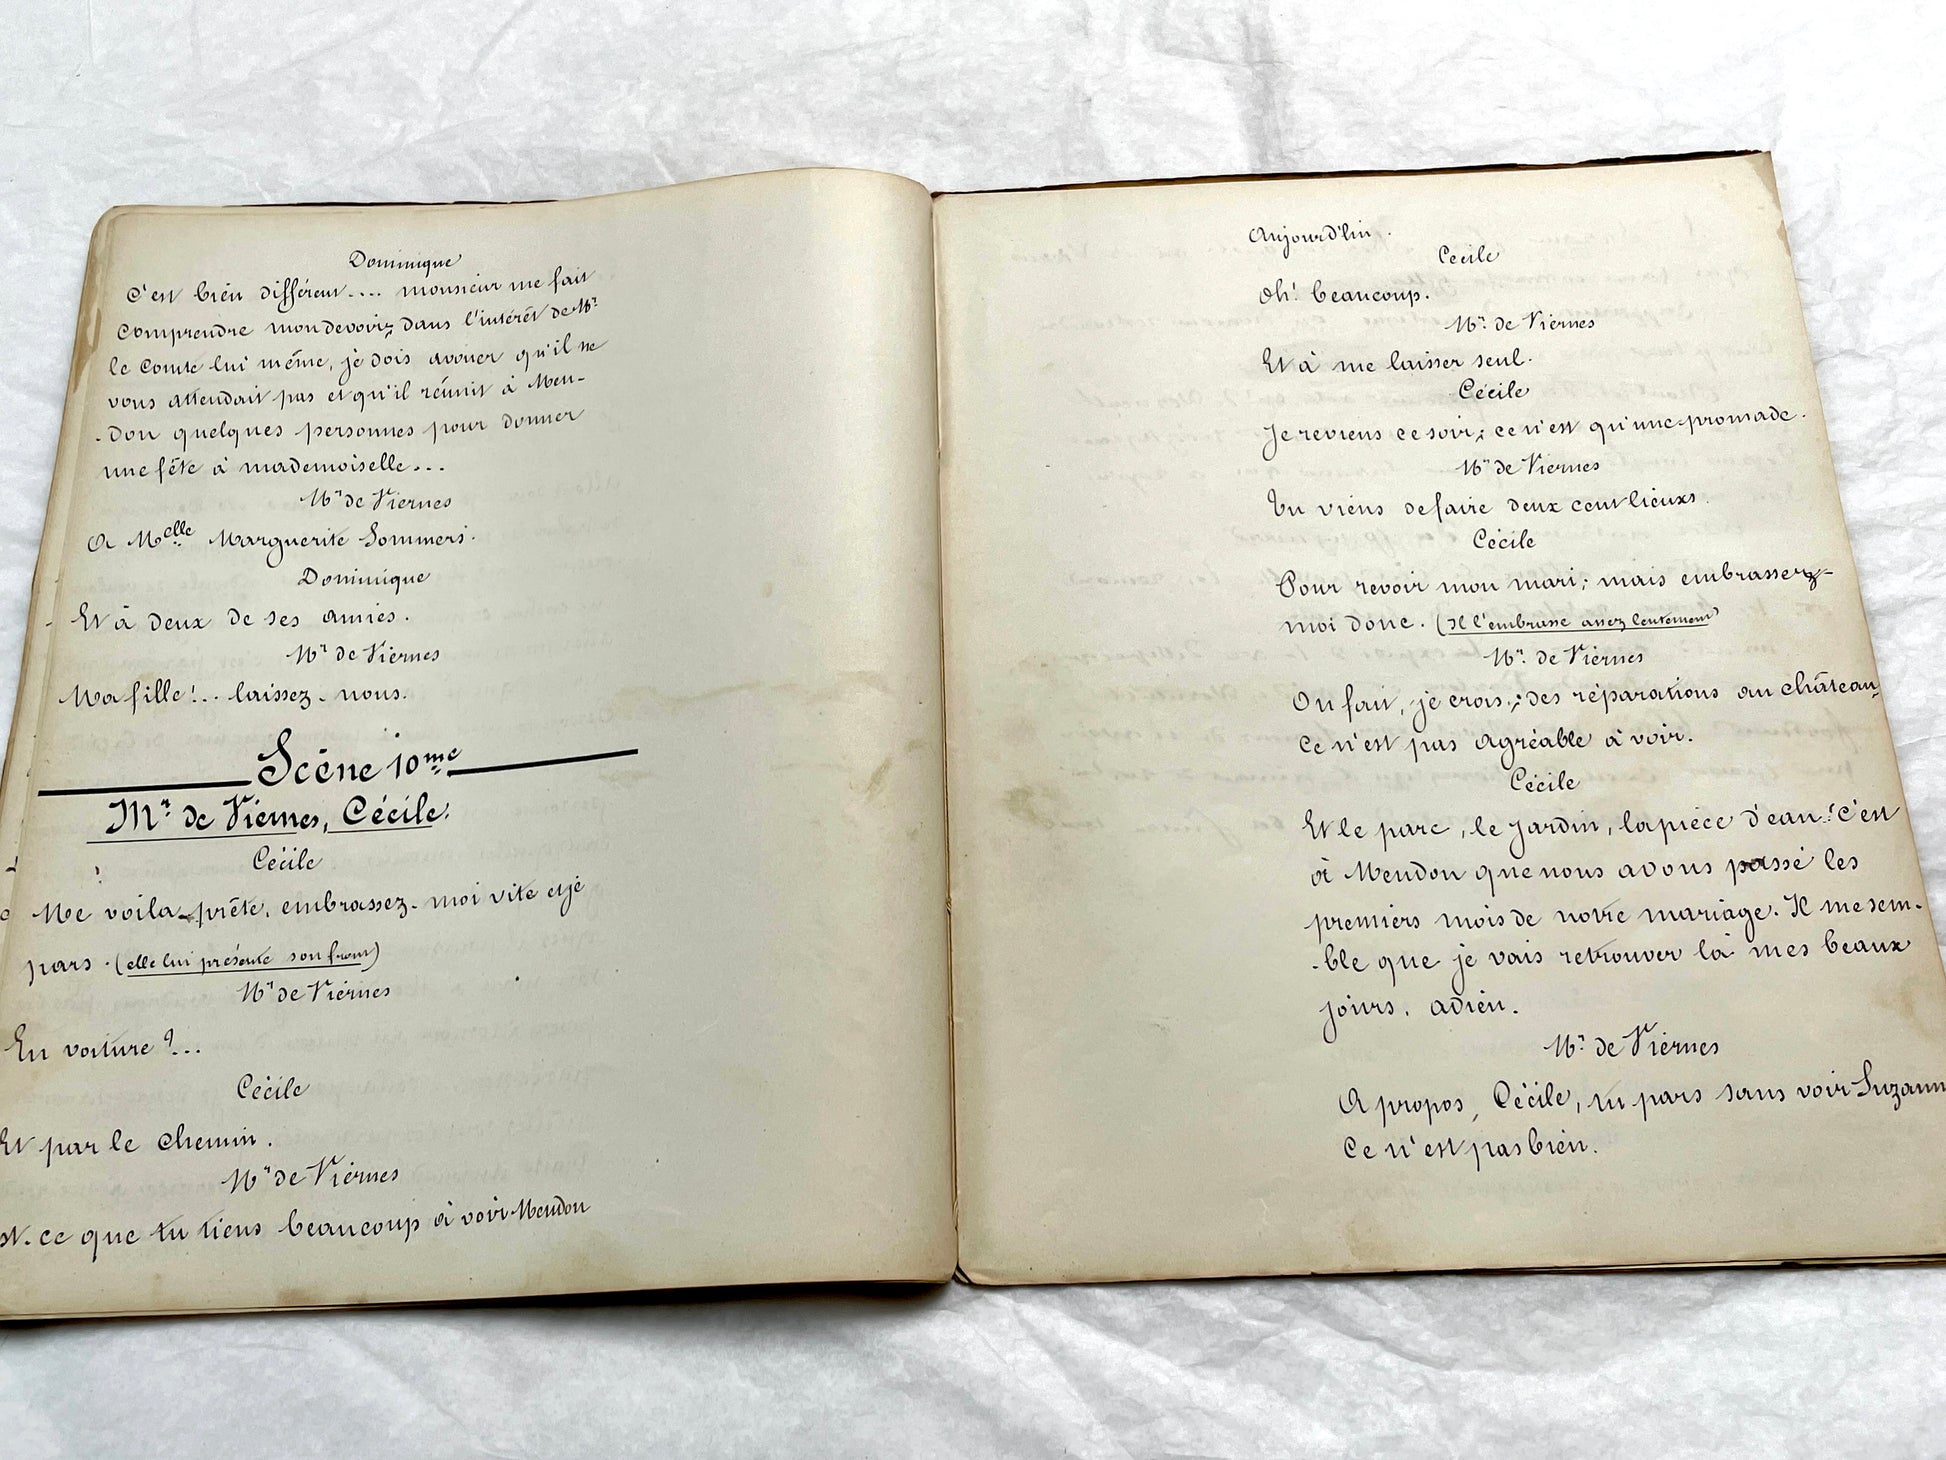 Dominique
C'est bien différent.... monsieur me fait
comprendre mon devoir; dans l'intérêt de Mr
le Comte lui même, je dois avouer qu'il ne
vous attendait pas et qu'il réunit à Meu-
-don quelques personnes pour donner
une fête à mademoiselle...
Mr de Viernes
A Melle Marguerite Sommers.
Dominique
Et à deux de ses amies.
Mr de Viernes
Ma fille!.. laissez-nous.
Scène 10me
Mr de Viernes, Cécile.
Cécile
Me voila prête, embrassez-moi vite et je
pars. (elle lui présente son front)
Mr de Viernes
En voiture?...
Cécile
Et par le chemin.
Mr de Viernes
Est-ce que tu tiens beaucoup à voir Meudon
Aujourd'hui.
Cecile
Oh! beaucoup.
Mr. de Viernes
Et à me laisser seul.
Cécile
Je reviens ce soir; ce n'est qu'une promade.
Mr de Viernes
Tu viens de faire deux cent lieuxs.
Cécile
Pour revoir mon mari; mais embrassez-
moi donc. (Il l'embrasse assez lentement)
Mr. de Viernes
On fait, je crois; des réparations au château,
Ce n'est pas agréable à voir.
Cécile
Et le parc, le jardin, la pièce d'eau! C'est
à Meudon que nous avons passé les
premiers mois de notre mariage. Il me sem-
-ble que je vais retrouver là mes beaux
jours. adieu.
Mr de Viernes
A propos, Cécile, tu pars sans voir Suzann
Ce n'est pas bien.